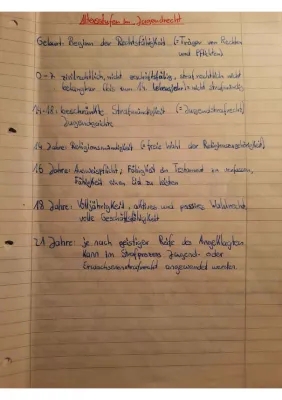 Altersstufen im Jugendrecht
Geburt: Beginn der Rechtsfähigkeit (=Träger von Rechten
und Pflichten)
0-7 zivilrechtlich nicht geschäftsfähig, strafrechtlich nicht
belangbar (bis zum 14. Lebensjahr) nicht strafmündig
14-18: beschränkte Strafmündigkeit (=Jugendstrafrecht)
Jugendgerichte
14 Jahre: Religionsmündigkeit (= freie Wahl der Religionszugehörigkeit)
16 Jahre: Ausweispflicht, Fähigkeit ein Testament zu verfassen,
Fähigkeit einen Eid zu leisten
18 Jahre: Volljährigkeit, aktives und passives Wahlrecht,
volle Geschäftsfähigkeit
21 Jahre: je nach geistiger Reife des Angeklagten
kann im Strafprozess Jugend- oder
Erwachsenenstrafrecht angewendet werden